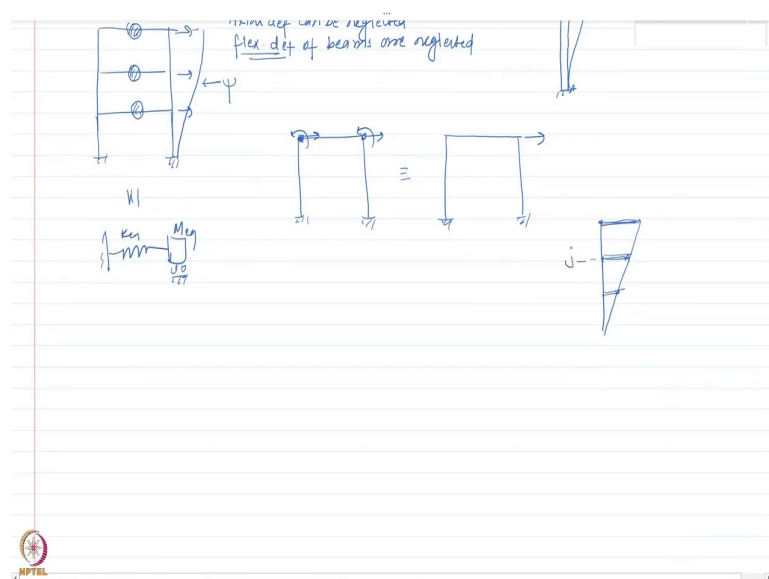 Axial def can be neglected
flex. def of beams are neglected
ψ
≡
Keq
Meq
j
NPTEL